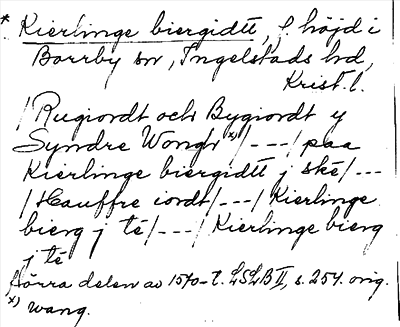 * Kierlinge biergidtt, f. höjd i
Borrby sn, Ingelstads hd,
Krist. l.
/Rugiordt och Bygiordt y
Syndre Wongh x)/---/ paa
Kierlinge biergidtt j ské/---
/Hauffre iordt/---/Kierlinge
bierg j té/---/Kierlinge bierg
j té
förra delen av 1570-t. LSLB II, s. 254. orig.
x) wang.